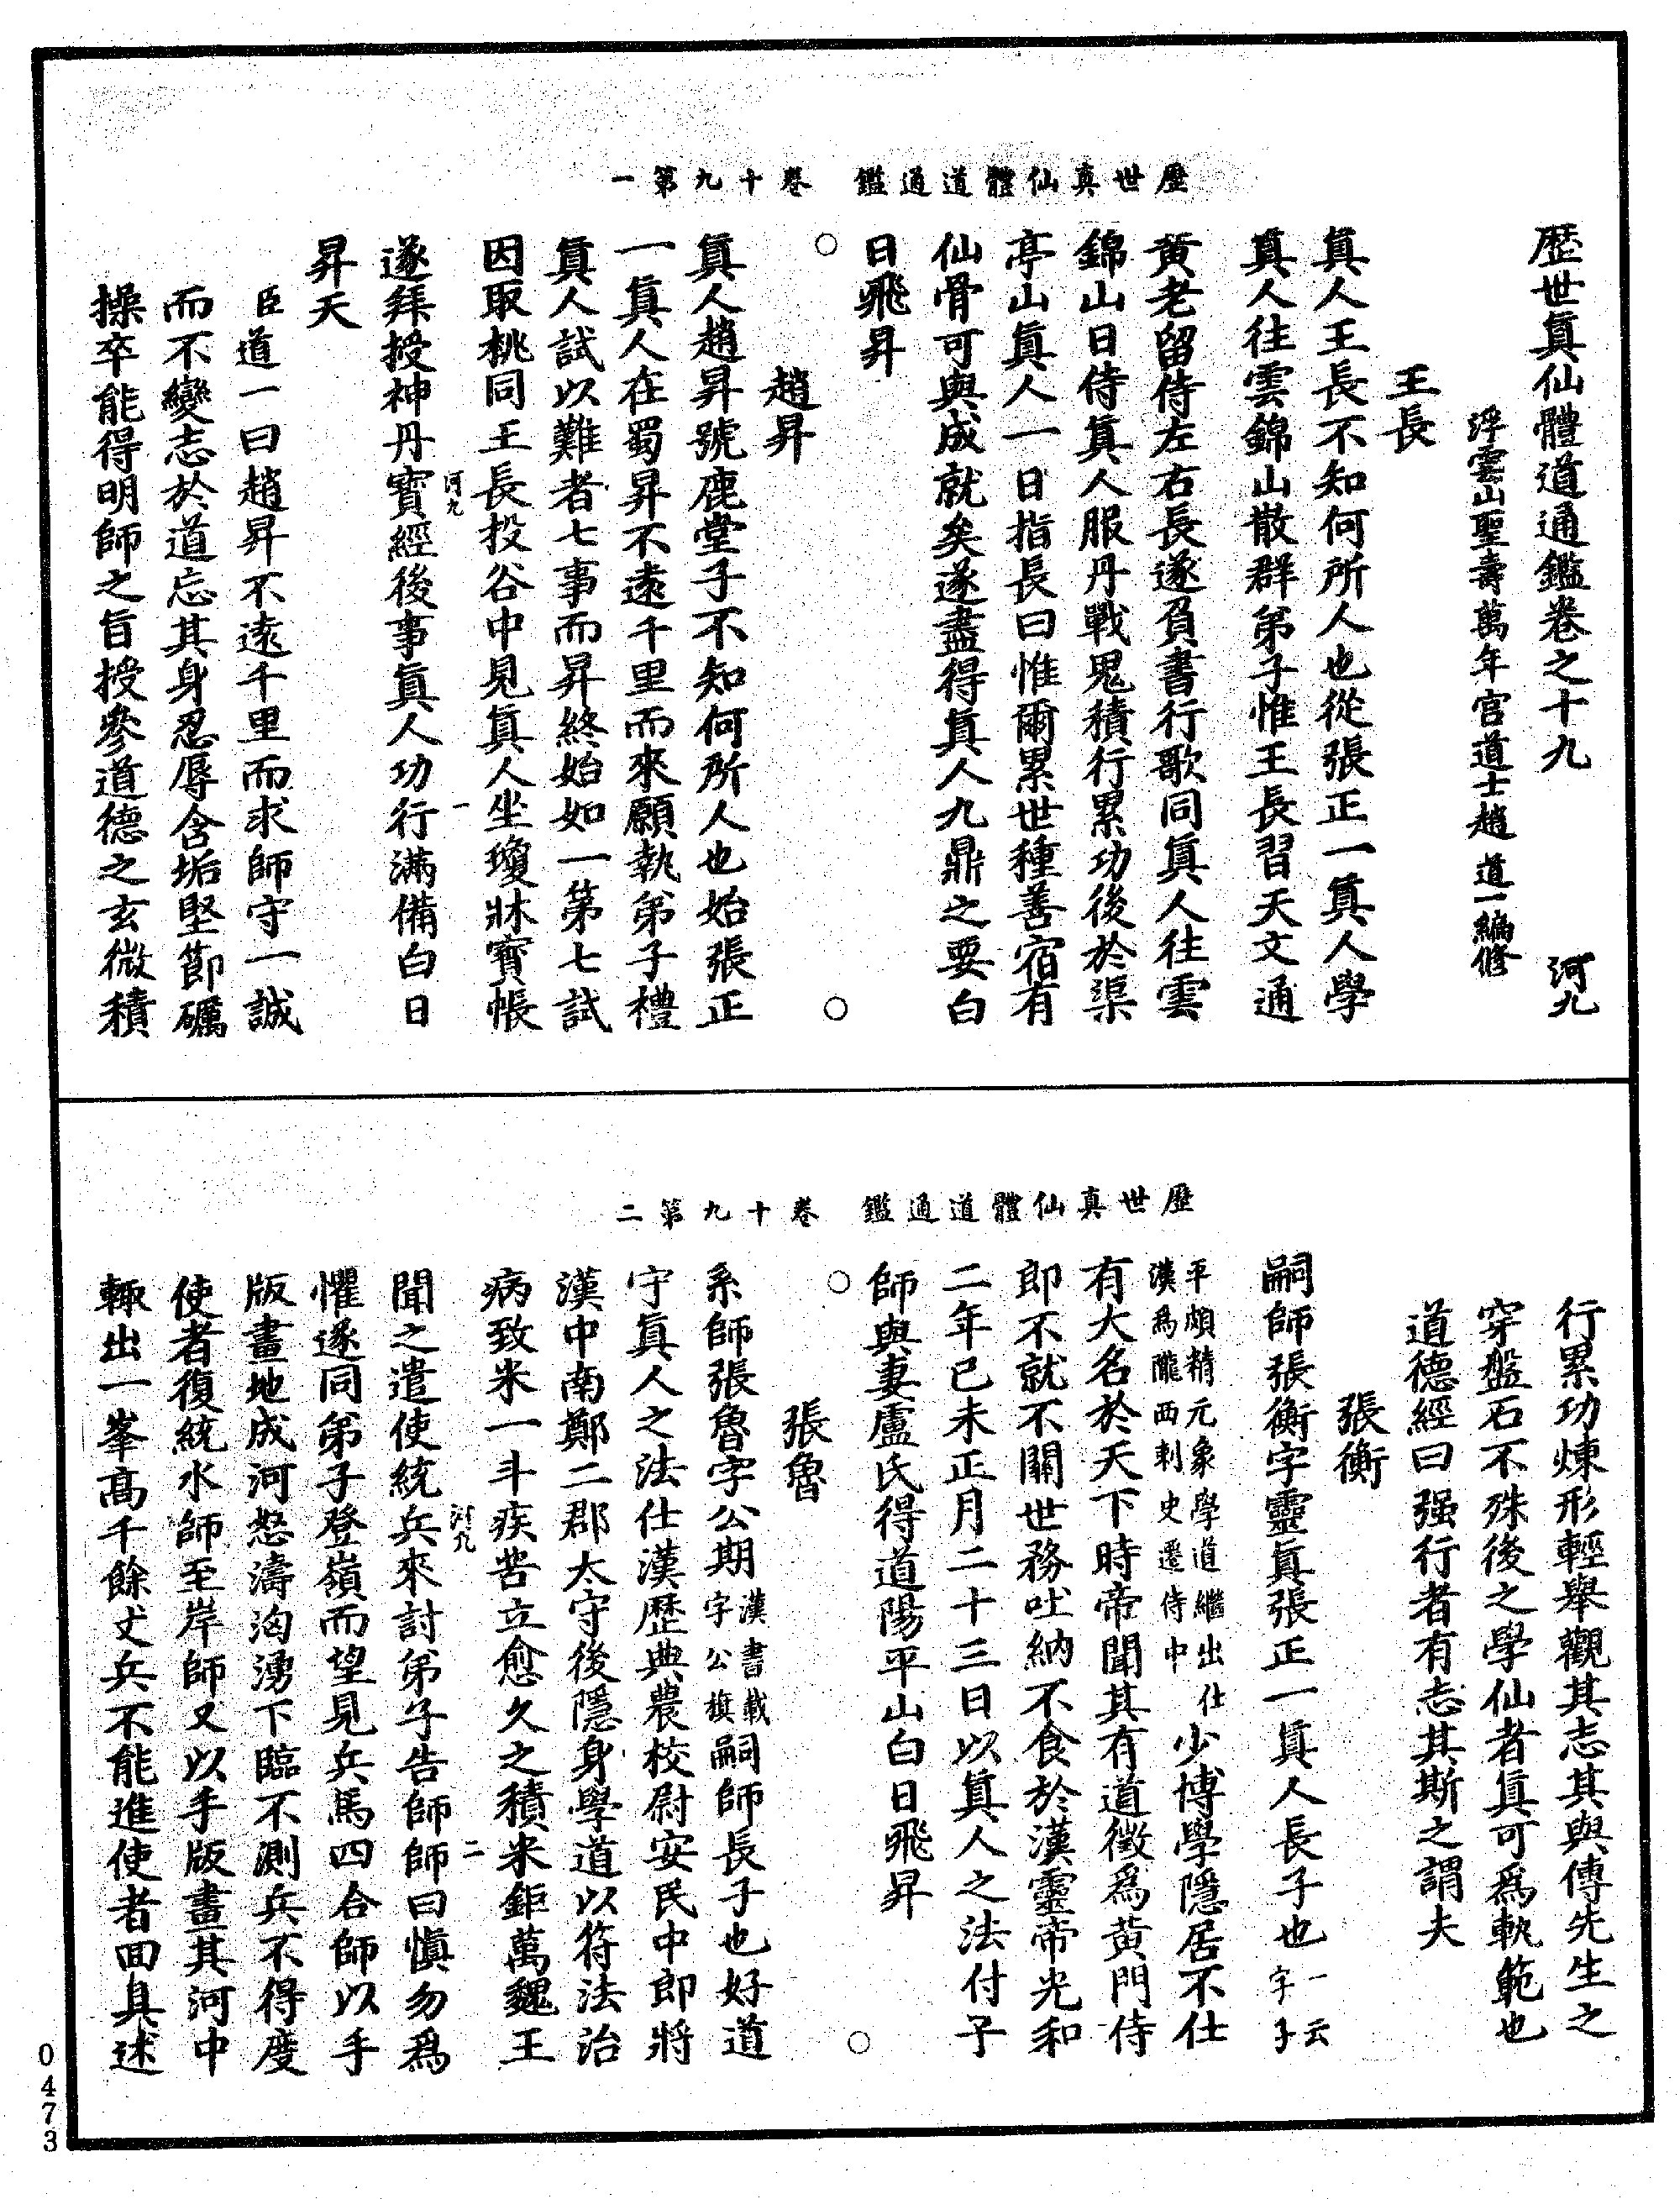 歷世真仙體道通鑑 卷十九第一
歷世眞仙體道通鑑卷之十九 河九
浮雲山聖壽萬年宮道士趙道一編修
王長
眞人王長不知何所人也從張正一眞人學
眞人往雲錦山散群弟子惟王長習天文通
黃老留侍左右長遂負書行歌同眞人往雲
錦山日侍眞人服丹戰鬼積行累功後於渠
亭山眞人一日指長曰惟爾累世種善宿有
仙骨可與成就矣遂盡得眞人九鼎之要白
日飛昇
○ ○
趙昇
眞人趙昇號鹿堂子不知何所人也始張正
一眞人在蜀昇不遠千里而來願執弟子禮
眞人試以難者七事而昇終始如一第七試
因取桃同王長投谷中見眞人坐瓊牀寶帳
河九 一
遂拜授神丹寶經後事眞人功行滿備白日
昇天
臣道一曰趙昇不遠千里而求師守一誠
而不變志於道忘其身忍辱含垢堅節礪
操卒能得明師之旨授參道德之玄微積
歷世真仙體道通鑑 卷十九第二
行累功煉形輕舉觀其志其與傳先生之
穿盤石不殊後之學仙者眞可爲軌範也
道德經曰强行者有志其斯之謂夫
張衡
嗣師張衡字靈眞張正一眞人長子也一云字子
平頗精元象學道繼出仕漢爲隴西刺史遷侍中少博學隱居不仕
有大名於天下時帝聞其有道徵爲黃門侍
郎不就不關世務吐納不食於漢靈帝光和
二年己未正月二十三日以眞人之法付子
師與妻盧氏得道陽平山白日飛昇
○ ○
張魯
系師張魯字公期漢書載字公旗嗣師長子也好道
守眞人之法仕漢歷典農校尉安民中郎將
漢中南鄭二郡太守後隱身學道以符法治
病致米一斗疾苦立愈久之積米鉅萬魏王
河九 二
聞之遣使統兵來討弟子告師師曰愼勿爲
懼遂同弟子登嶺而望見兵馬四合師以手
版畫地成河怒濤洶湧下臨不測兵不得度
使者復統水師至岸師又以手版畫其河中
輒出一峯高千餘丈兵不能進使者回具述
0473